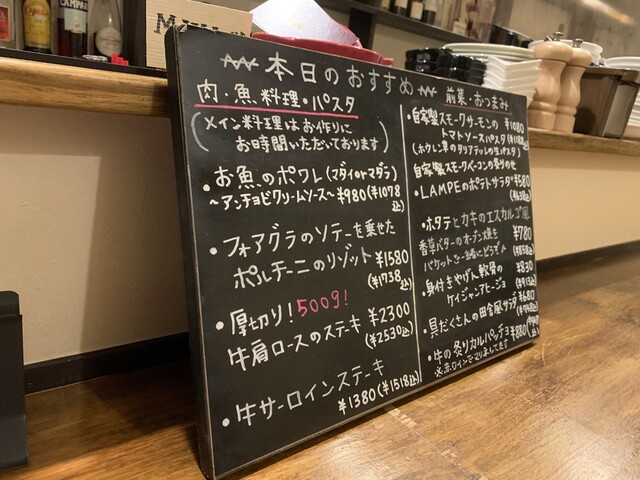 CAMPARI
本日のおすすめ
肉・魚料理・パスタ
(メイン料理はお作りに
お時間いただいております)
・お魚のポワレ(マダイorマダラ)
~アンチョビクリームソース~ ¥980(¥1078込)
・フォアグラのソテーを乗せた
ポルチーニのリゾット ¥1580
(¥1738込)
・厚切り!500g!
牛肩ロースのステーキ ¥2300
(¥2530込)
・牛サーロインステーキ
¥1380(¥1518込)
前菜・おつまみ
・自家製スモークサーモンの ¥1080
トマトソースパスタ(¥1188込)
(ホウレン草のタリアテッレの生パスタ)
自家製スモークベーコンの炙りのせ
・LAMPEのポテトサラダ ¥580
(¥638込)
・ホタテとカキのエスカルゴ風
香草バターのオーブン焼き ¥780
バケットとご一緒にどうぞ♪ (¥858込)
・身付きやげん軟骨の ¥830
ケイジャンアヒージョ (¥913込)
・具だくさんの田舎風サラダ ¥680
(¥748込)
・牛の炙りカルパッチョ ¥880